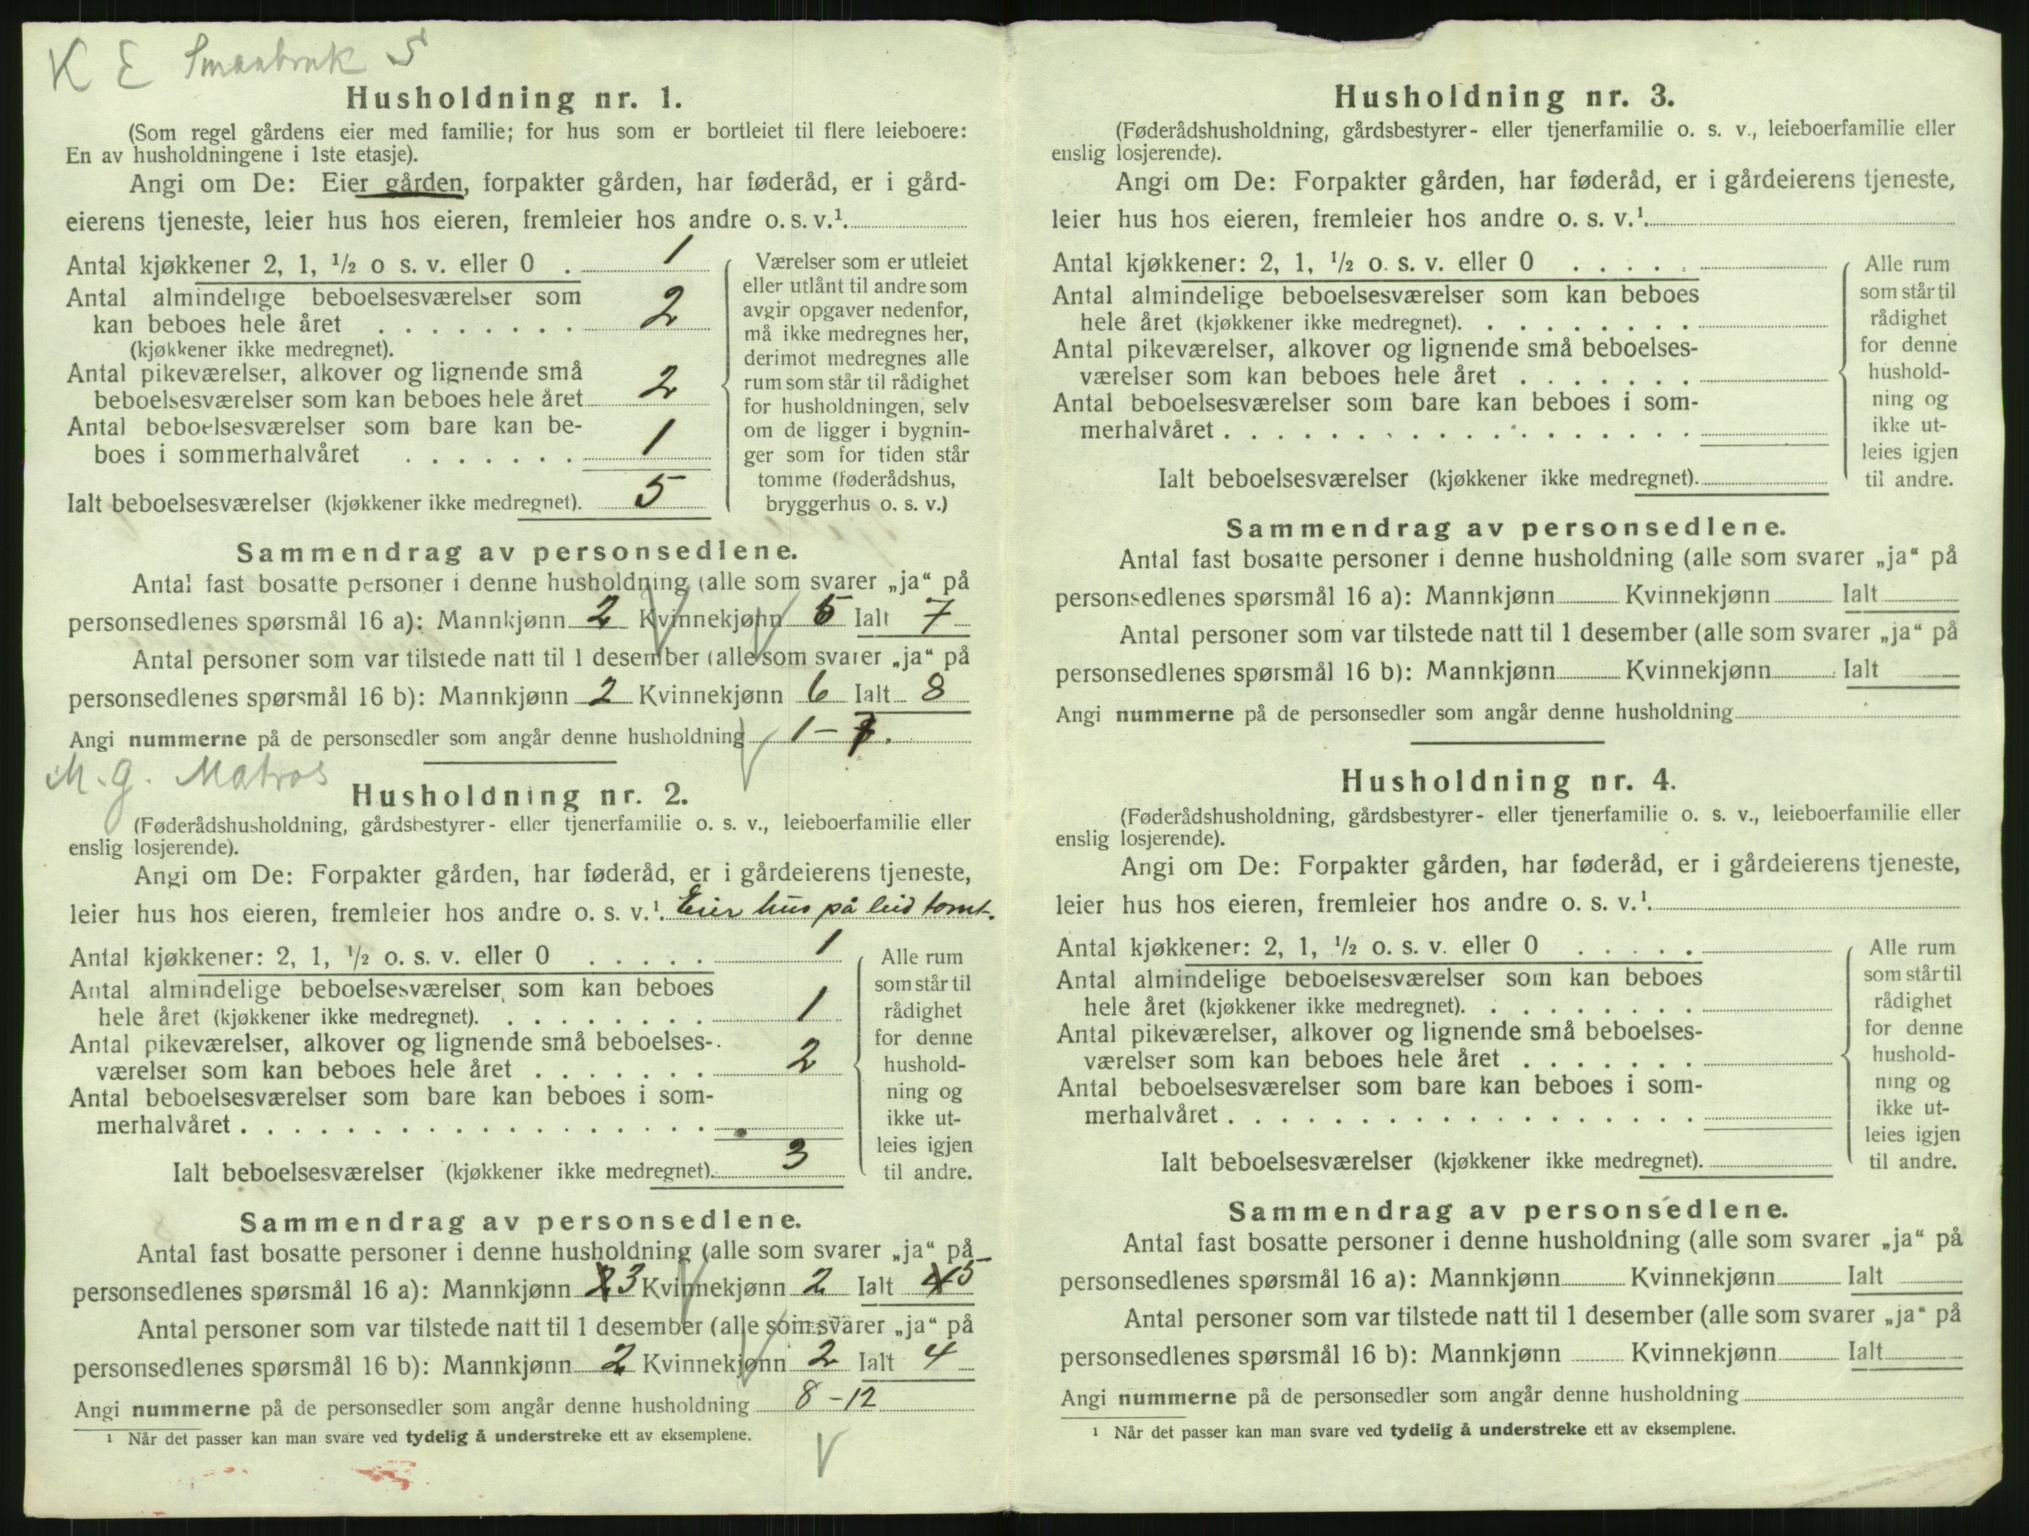 K E Smaabruk S
Husholdning nr. 1.
(Som regel gårdens eier med familie; for hus som er bortleiet til flere leieboere:
En av husholdningene i 1ste etasje).
Angi om De: Eier gården, forpakter gården, har føderåd, er i gård-
eierens tjeneste, leier hus hos eieren, fremleier hos andre o. s. v.¹.
Antal kjøkkener 2, 1, ½ o s. v. eller 0 . 1
Antal almindelige beboelsesværelser som
kan beboes hele året . . . . . . . . 2
(kjøkkener ikke medregnet).
Antal pikeværelser, alkover og lignende små
beboelsesværelser som kan beboes hele året 2
Antal beboelsesværelser som bare kan be-
boes i sommerhalvåret . . . . . . . 1
Ialt beboelsesværelser (kjøkkener ikke medregnet). 5
Værelser som er utleiet
eller utlånt til andre som
avgir opgaver nedenfor,
må ikke medregnes her,
derimot medregnes alle
rum som står til rådighet
for husholdningen, selv
om de ligger i bygnin-
ger som for tiden står
tomme (føderådshus,
bryggerhus o. s. v.)
Sammendrag av personsedlene.
Antal fast bosatte personer i denne husholdning (alle som svarer „ja“ på
personsedlenes spørsmål 16 a): Mannkjønn 2 Kvinnekjønn 5 Ialt 7
Antal personer som var tilstede natt til 1 desember (alle som svarer „ja“ på
personsedlenes spørsmål 16 b): Mannkjønn 2 Kvinnekjønn 6 Ialt 8
Angi nummerne på de personsedler som angår denne husholdning 1 –
M. g. Matros
Husholdning nr. 2.
(Føderådshusholdning, gårdsbestyrer- eller tjenerfamilie o. s. v., leieboerfamilie eller
enslig losjerende).
Angi om De: Forpakter gården, har føderåd, er i gårdeierens tjeneste,
leier hus hos eieren, fremleier hos andre o. s. v.¹. Eier hus på leid tomt.
Antal kjøkkener: 2, 1, ½ o. s. v. eller 0 . . . . . 1
Antal almindelige beboelsesværelser som kan beboes
hele året (kjøkkener ikke medregnet). . . . . . . . . 1
Antal pikeværelser, alkover og lignende små beboelses-
værelser som kan beboes hele året . . . . . . . 2
Antal beboelsesværelser som bare kan beboes i som-
merhalvåret . . . . . . . . . . . . . . . . . .
Ialt beboelsesværelser (kjøkkener ikke medregnet). 3
Alle rum
som står til
rådighet
for denne
hushold-
ning og
ikke ut-
leies igjen
til andre.
Sammendrag av personsedlene.
Antal fast bosatte personer i denne husholdning (alle som svarer „ja“ på
personsedlenes spørsmål 16 a): Mannkjønn 2 3 Kvinnekjønn 2 Ialt 4 5
Antal personer som var tilstede natt til 1 desember (alle som svarer „ja“ på
personsedlenes spørsmål 16 b): Mannkjønn 2 Kvinnekjønn 2 Ialt 4
Angi nummerne på de personsedler som angår denne husholdning 8 – 12
¹ Når det passer kan man svare ved tydelig å understreke ett av eksemplene.
Husholdning nr. 3.
(Føderådshusholdning, gårdsbestyrer- eller tjenerfamilie o. s. v., leieboerfamilie eller
enslig losjerende).
Angi om De: Forpakter gården, har føderåd, er i gårdeierens tjeneste,
leier hus hos eieren, fremleier hos andre o. s. v.¹.
Antal kjøkkener: 2, 1, ½ o. s. v. eller 0 . . . . .
Antal almindelige beboelsesværelser som kan beboes
hele året (kjøkkener ikke medregnet). . . . . . . . .
Antal pikeværelser, alkover og lignende små beboelses-
værelser som kan beboes hele året . . . . . . .
Antal beboelsesværelser som bare kan beboes i som-
merhalvåret . . . . . . . . . . . . . . . . . .
Ialt beboelsesværelser (kjøkkener ikke medregnet).
Alle rum
som står til
rådighet
for denne
hushold-
ning og
ikke ut-
leies igjen
til andre.
Sammendrag av personsedlene.
Antal fast bosatte personer i denne husholdning (alle som svarer „ja“ på
personsedlenes spørsmål 16 a): Mannkjønn Kvinnekjønn Ialt
Antal personer som var tilstede natt til 1 desember (alle som svarer „ja“ på
personsedlenes spørsmål 16 b): Mannkjønn Kvinnekjønn Ialt
Angi nummerne på de personsedler som angår denne husholdning
Husholdning nr. 4.
(Føderådshusholdning, gårdsbestyrer- eller tjenerfamilie o. s. v., leieboerfamilie eller
enslig losjerende).
Angi om De: Forpakter gården, har føderåd, er i gårdeierens tjeneste,
leier hus hos eieren, fremleier hos andre o. s. v.¹.
Antal kjøkkener: 2, 1, ½ o. s. v. eller 0 . . . . .
Antal almindelige beboelsesværelser som kan beboes
hele året (kjøkkener ikke medregnet). . . . . . . . .
Antal pikeværelser, alkover og lignende små beboelses-
værelser som kan beboes hele året . . . . . . .
Antal beboelsesværelser som bare kan beboes i som-
merhalvåret . . . . . . . . . . . . . . . . . .
Ialt beboelsesværelser (kjøkkener ikke medregnet).
Alle rum
som står til
rådighet
for denne
hushold-
ning og
ikke ut-
leies igjen
til andre.
Sammendrag av personsedlene.
Antal fast bosatte personer i denne husholdning (alle som svarer „ja“ på
personsedlenes spørsmål 16 a): Mannkjønn Kvinnekjønn Ialt
Antal personer som var tilstede natt til 1 desember (alle som svarer „ja“ på
personsedlenes spørsmål 16 b): Mannkjønn Kvinnekjønn Ialt
Angi nummerne på de personsedler som angår denne husholdning
¹ Når det passer kan man svare ved tydelig å understreke ett av eksemplene.